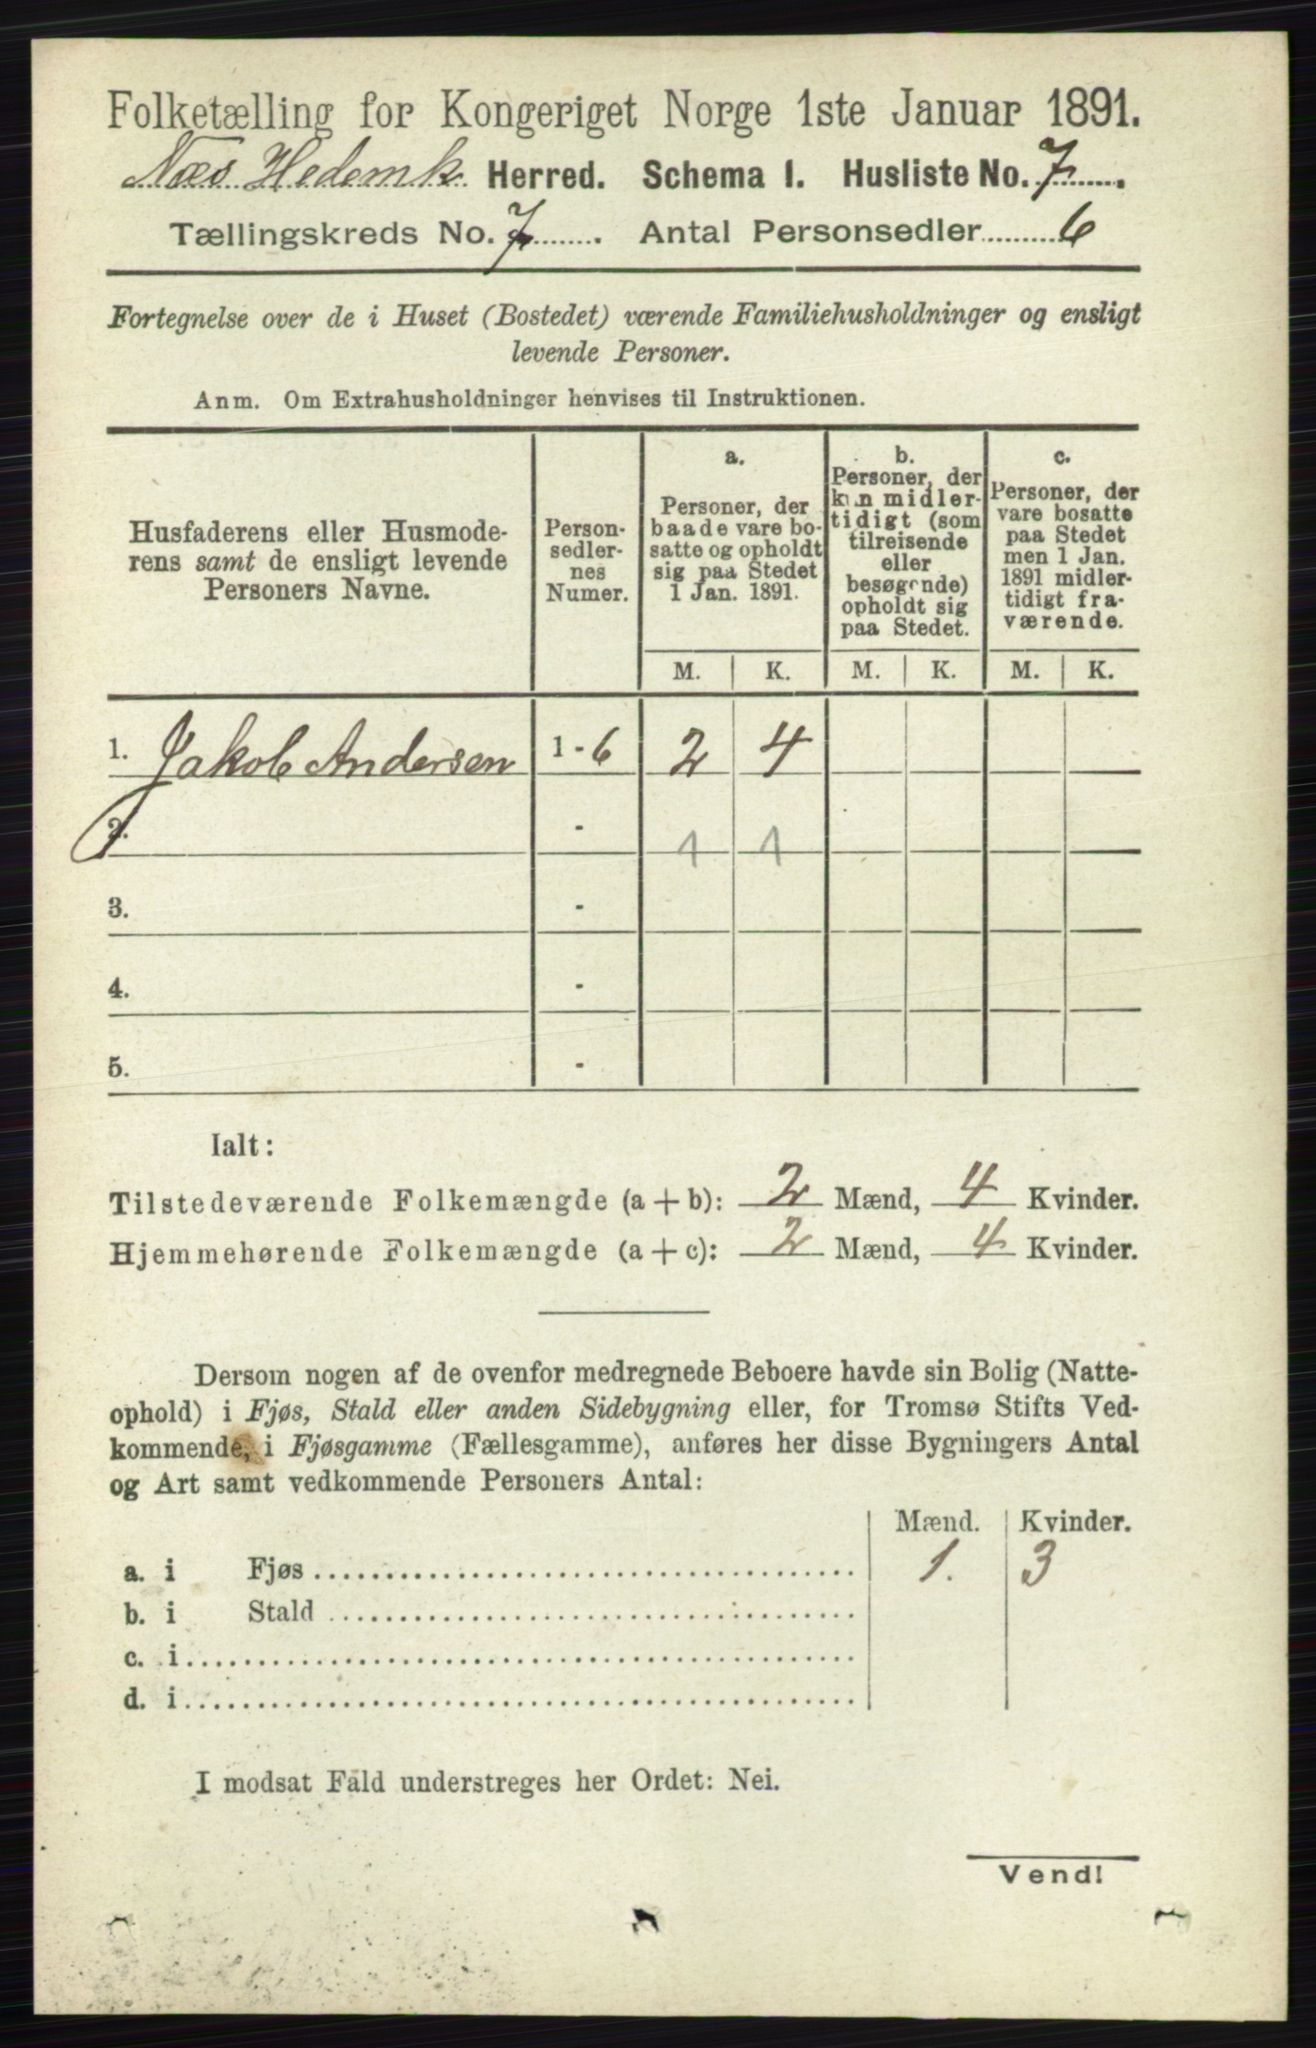 Folketælling for Kongeriget Norge 1ste Januar 1891.
Næs Hedemk. Herred. Schema 1. Husliste No. 7.
Tællingskreds No. 7. Antal Personsedler 6
Fortegnelse over de i Huset (Bostedet) værende Familiehusholdninger og ensligt
levende Personer.
Anm. Om Extrahusholdninger henvises til Instruktionen.
Husfaderens eller Husmode-
rens samt de ensligt levende
Personers Navne.
Person-
sedler-
nes
Numer.
a.
Personer, der
baade vare bo-
satte og opholdt
sig paa Stedet
1 Jan. 1891.
b.
Personer, der
kun midler-
tidigt (som
tilreisende
eller
besøgende)
opholdt sig
paa Stedet.
c.
Personer, der
vare bosatte
paa Stedet
men 1 Jan.
1891 midler-
tidigt fra-
værende.
M. K. M. K. M. K.
1. Jakob Andersen 1 - 6 2 4
2. - 1 1
3. -
4. -
5. -
Ialt:
Tilstedeværende Folkemængde (a + b): 2 Mænd, 4 Kvinder.
Hjemmehørende Folkemængde (a + c): 2 Mænd, 4 Kvinder.
Dersom nogen af de ovenfor medregnede Beboere havde sin Bolig (Natte-
ophold) i Fjøs, Stald eller anden Sidebygning eller, for Tromsø Stifts Ved-
kommende, i Fjøsgamme (Fællesgamme), anføres her disse Bygningers Antal
og Art samt vedkommende Personers Antal:
Mænd. Kvinder.
a. i Fjøs 1. 3
b. i Stald
c. i
d. i
I modsat Fald understreges her Ordet: Nei.
Vend!